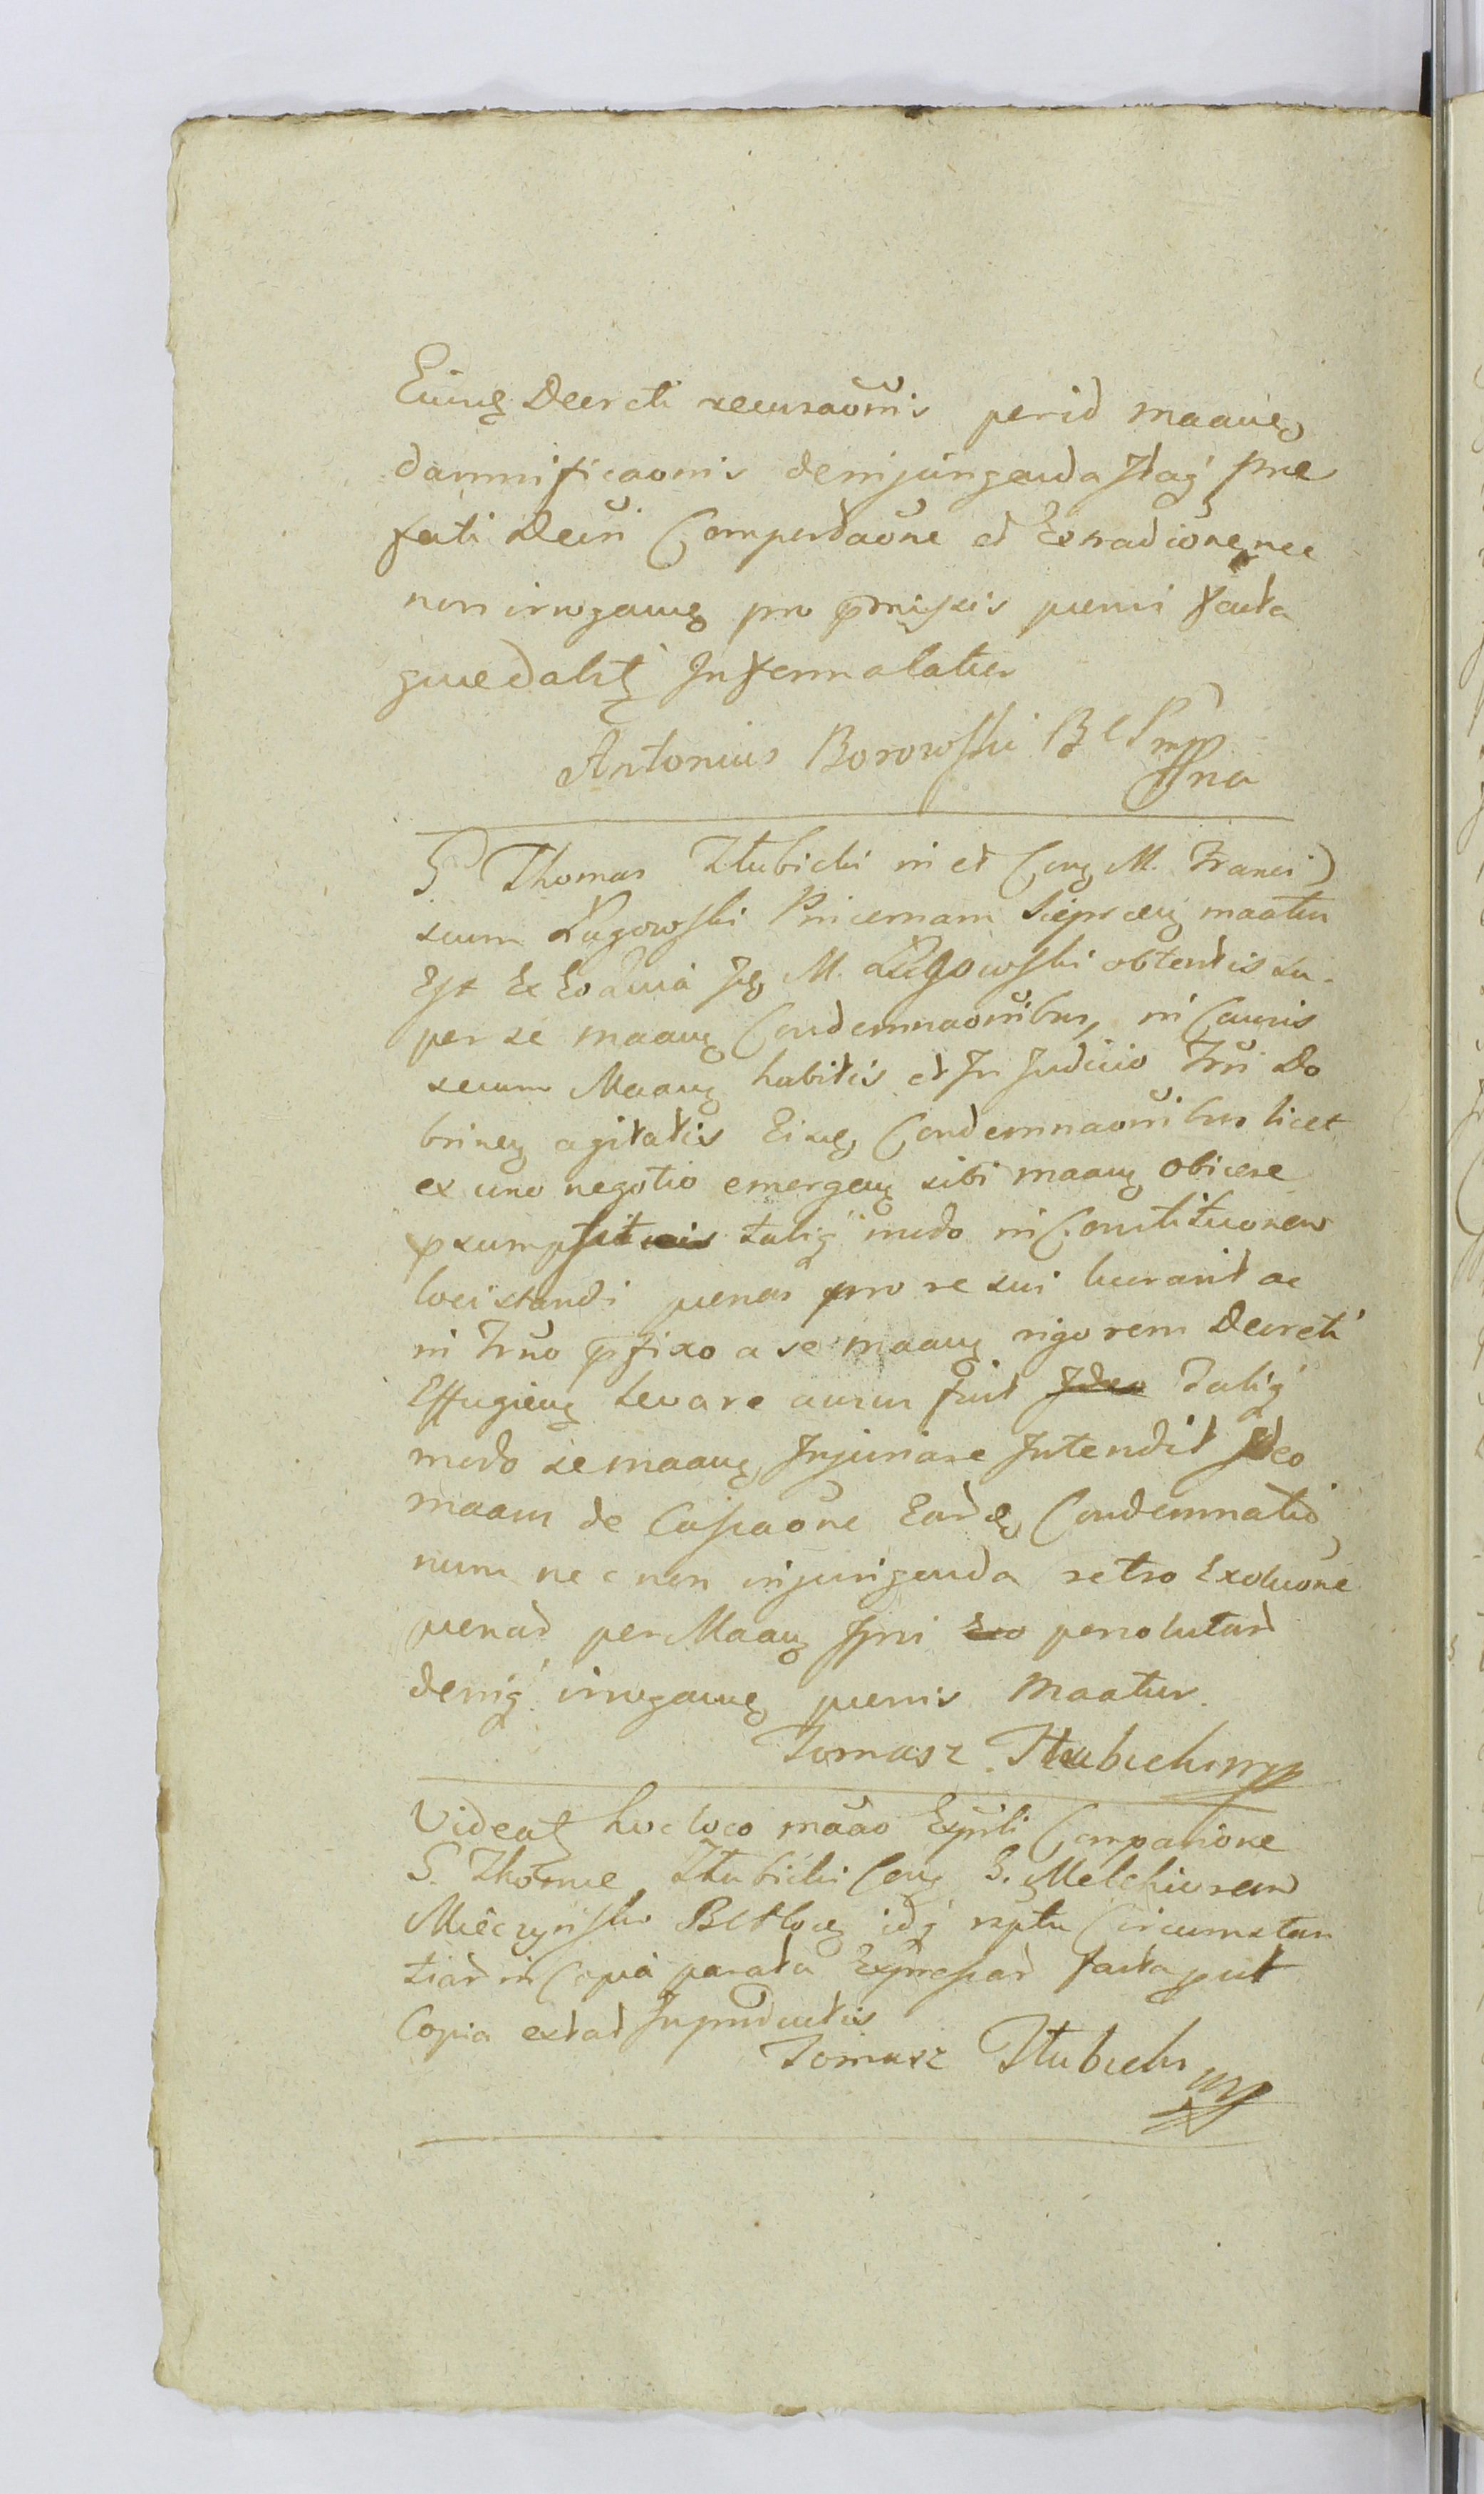 Eiusq Decreti recusaonis per id maaneo
damnificaonis de injungenda Itaq prae
fati Decri Comportaone et Extradicione nec
non irrogaueq pro pmissis paeni facta
gmedalitq Infermalatur
Antonius Borowski B C P mpp
G Thomas Itubicki in et Conq M. Franci
scum Ługowski Pincernam Sieprcenq maatur
Est Ex Eo quia Isq M. Lugowski obtentis su-
per se maanq Condemnaonibus, in Causis
secum Maanq habitis et In Judicio Trri Do
brinenq agitatis Eisq Condemnaonibus licet
ex uno negotio emergenq sibi maanq obicere
psumpsit talig modo in Constitutionem
loci standi paenas pro re sui luerarit ac
in Trno pfixo a se maanq rigorem Decreti
Effugienq Levare ausus fuit Ideo Talig
modo se maanq Injuriare Intendit Ideo
maam de Cassaone Eardeq Condemnatio
num nec non injungenda retro Exoluone
paenar per Maanq Ipni persolutar
deniq irrogaueq paenis Maatur.
Tomasz Itubicki mpp
Videatq hoc loco maao Expti Comparitione
G. Thomae Itubicki Conq G. Melchiorem
Mięczyński BCHocq idq rsptu Circumstan
tiar in Copia parata Expressar facta put
Copia extat In productis
Tomasz Itubicki mpp